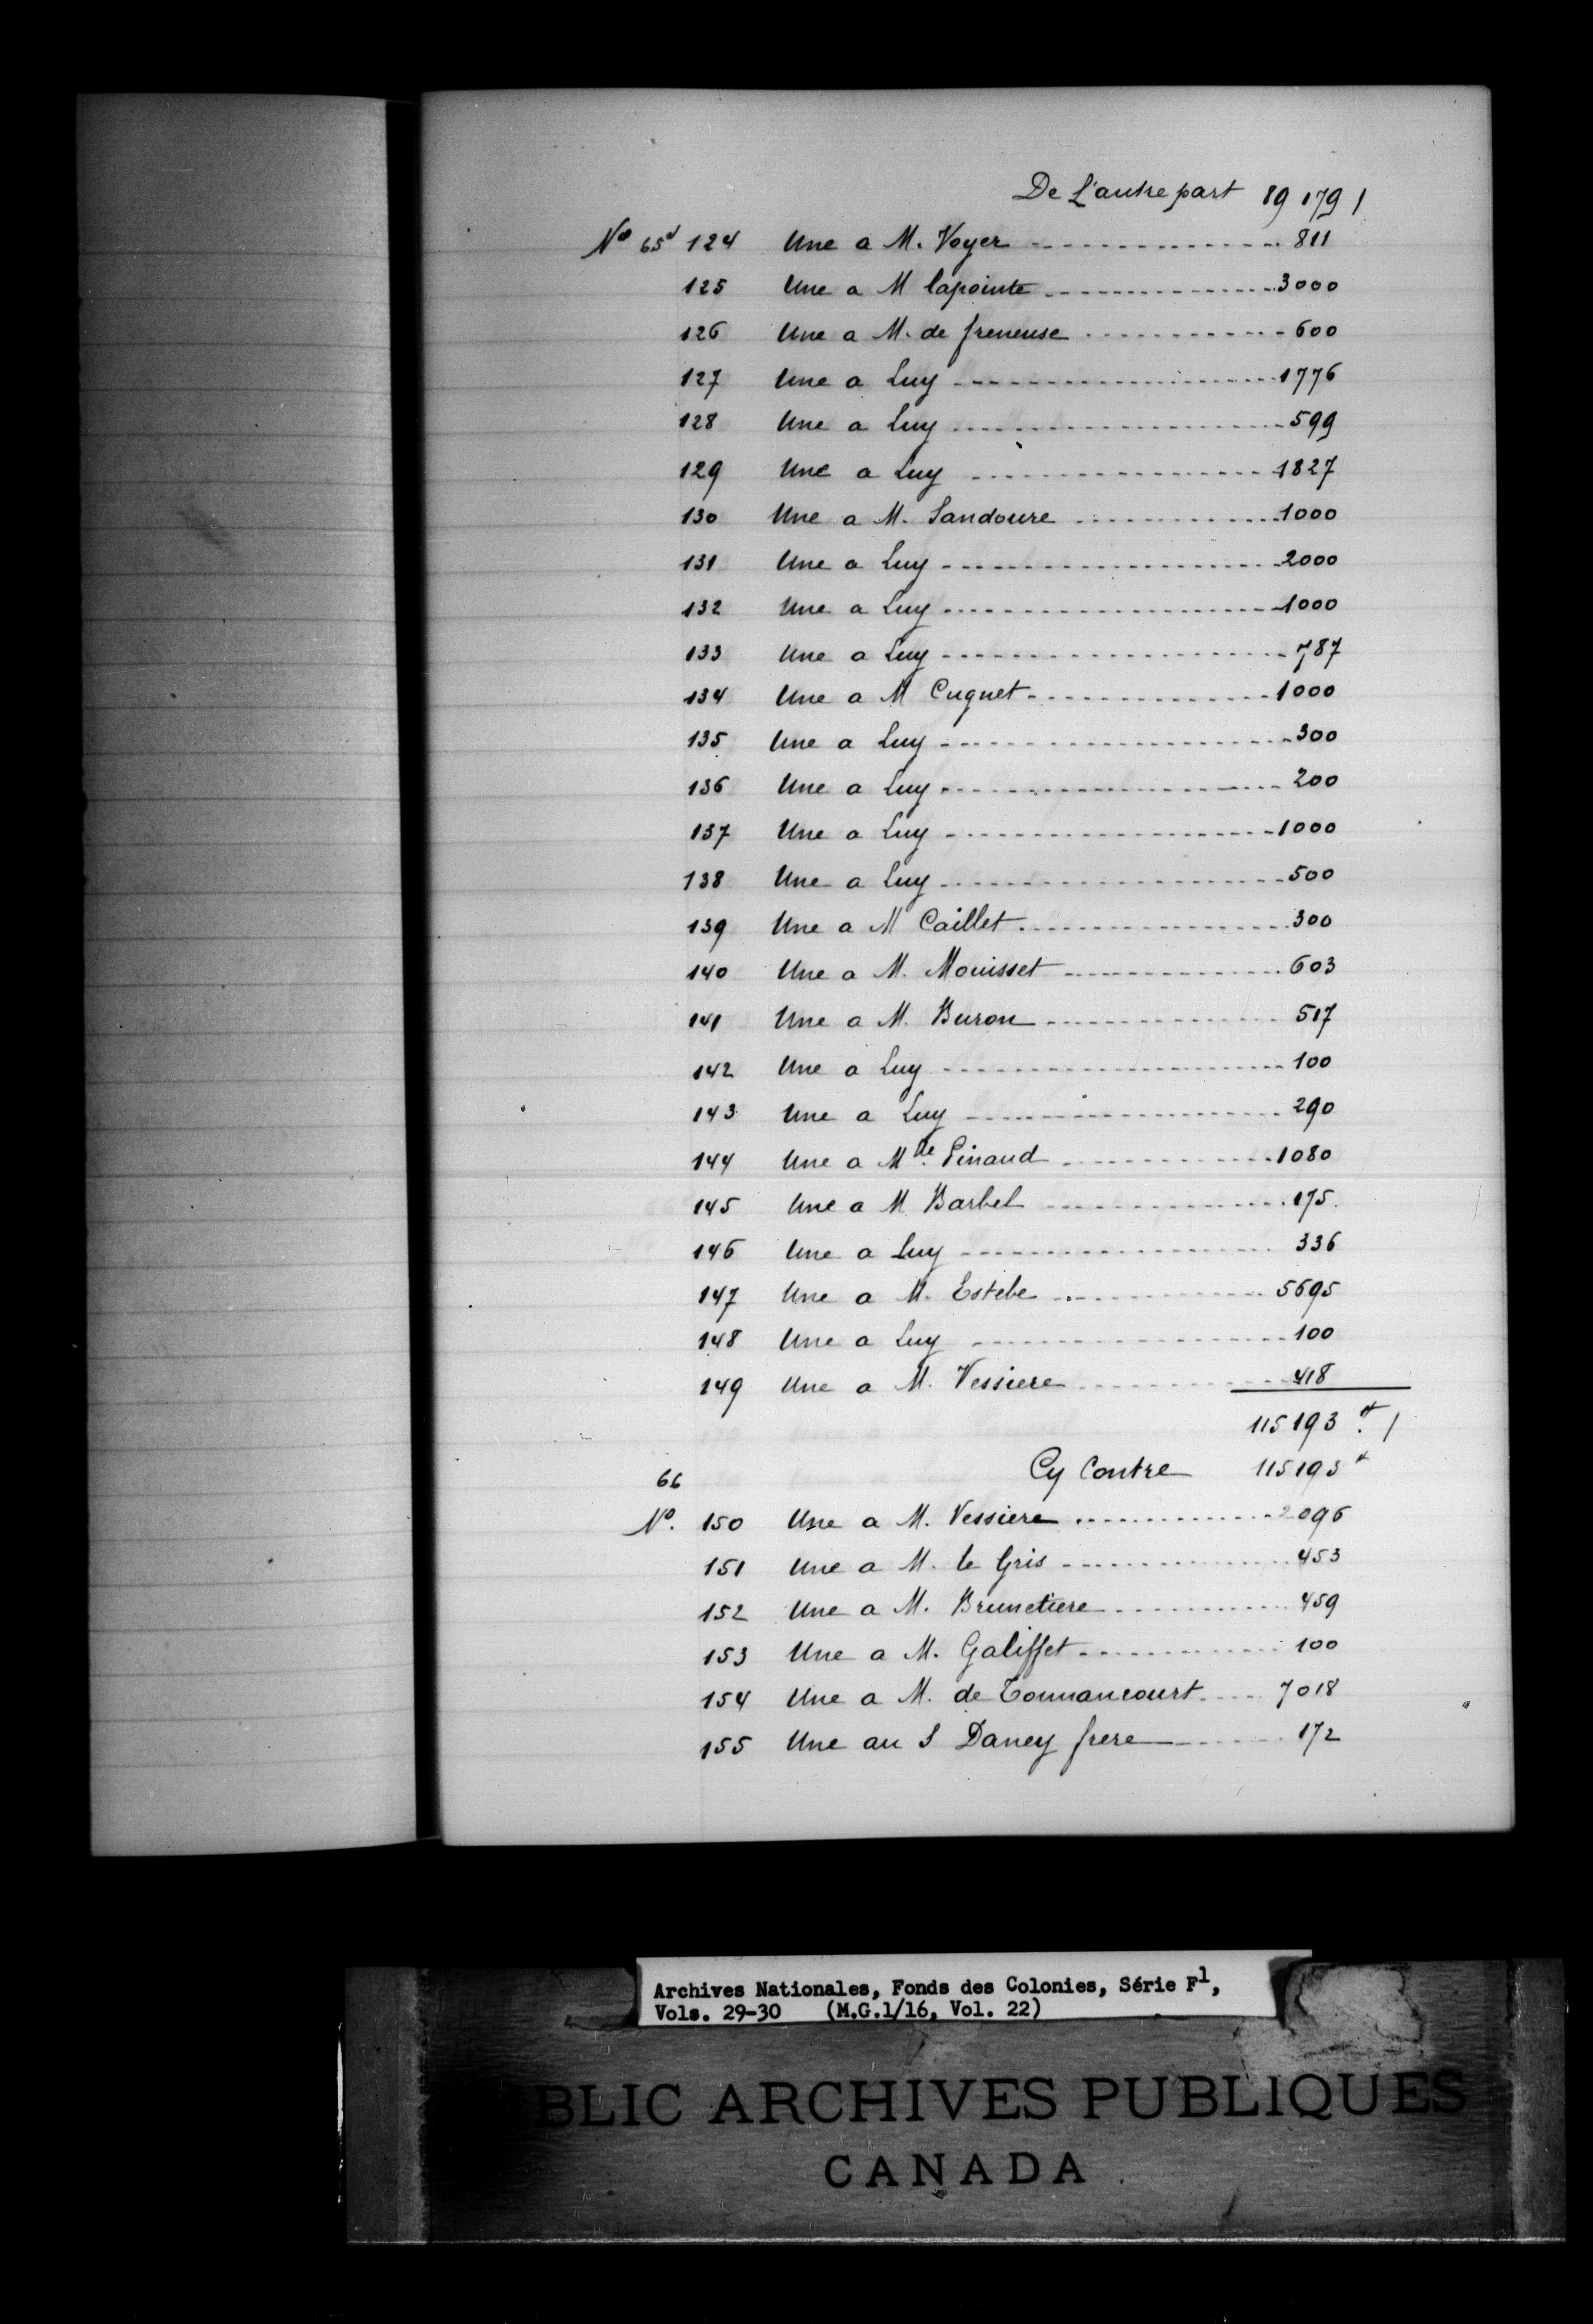 De L'autre part 89 179 /
Nº 65d 124 Une a M. Voyer 811
125 Une a M lapointe 3000
126 Une a M. de freneuse 600
127 Une a Luy 1776
128 Une a Luy 599
129 Une a Luy 1827
130 Une a M. Landoure 1000
131 Une a Luy 2000
132 Une a Luy 1000
133 Une a Luy 787
134 Une a M Cugnet 1000
135 Une a Luy 300
136 Une a Luy 200
137 Une a Luy 1000
138 Une a Luy 500
139 Une a M Caillet 300
140 Une a M. Mouisset 603
141 Une a M. Buron 517
142 Une a Luy 100
143 Une a Luy 290
144 Une a Mde Pinaud 1080
145 Une a M Barbel 175
146 Une a Luy 336
147 Une a M. Estebe 5695
148 Une a Luy 100
149 Une a M. Vessiere 418
115 193 /
66 Cy Contre 115 193
Nº. 150 Une a M. Vessiere 2096
151 Une a M. le Gris 453
152 Une a M. Brunetiere 459
153 Une a M. Galiffet 100
154 Une a M. de Tonnancourt 7018
155 Une au S Daney frere 172
Archives Nationales, Fonds des Colonies, Série F1,
Vols. 29-30 (M.G.1/16, Vol. 22)
BLIC ARCHIVES PUBLIQUES
CANADA